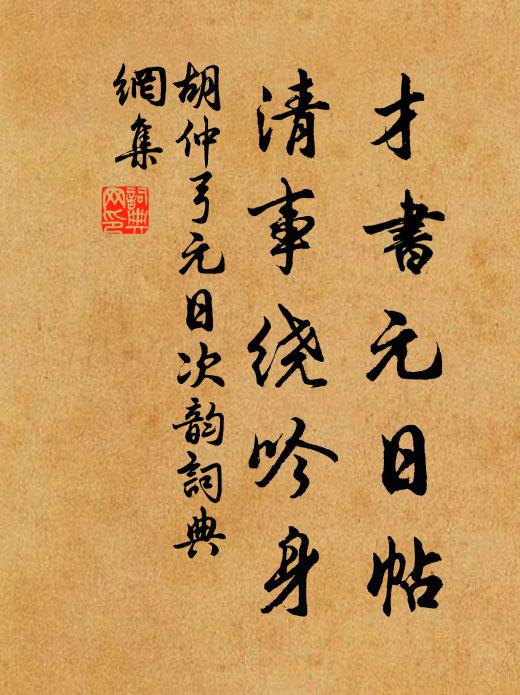 才書元日帖
清事绕吟身
胡仲弓元日次韵詞典
網集
詞典
网印